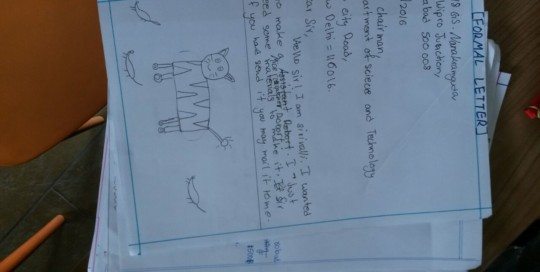 [FORMAL LETTER]
GS,
Wipro Junction,
abad 500 008
/2016
chairman
artment of sciece and Technology
city Road,
w Delhi = 110016.
ar Sir,
Hello Sir! I am sirivalli. I wanted
o make a Assistant Robort I just
eed some materials to make it. Sir
f you have read it you may mail it to me.